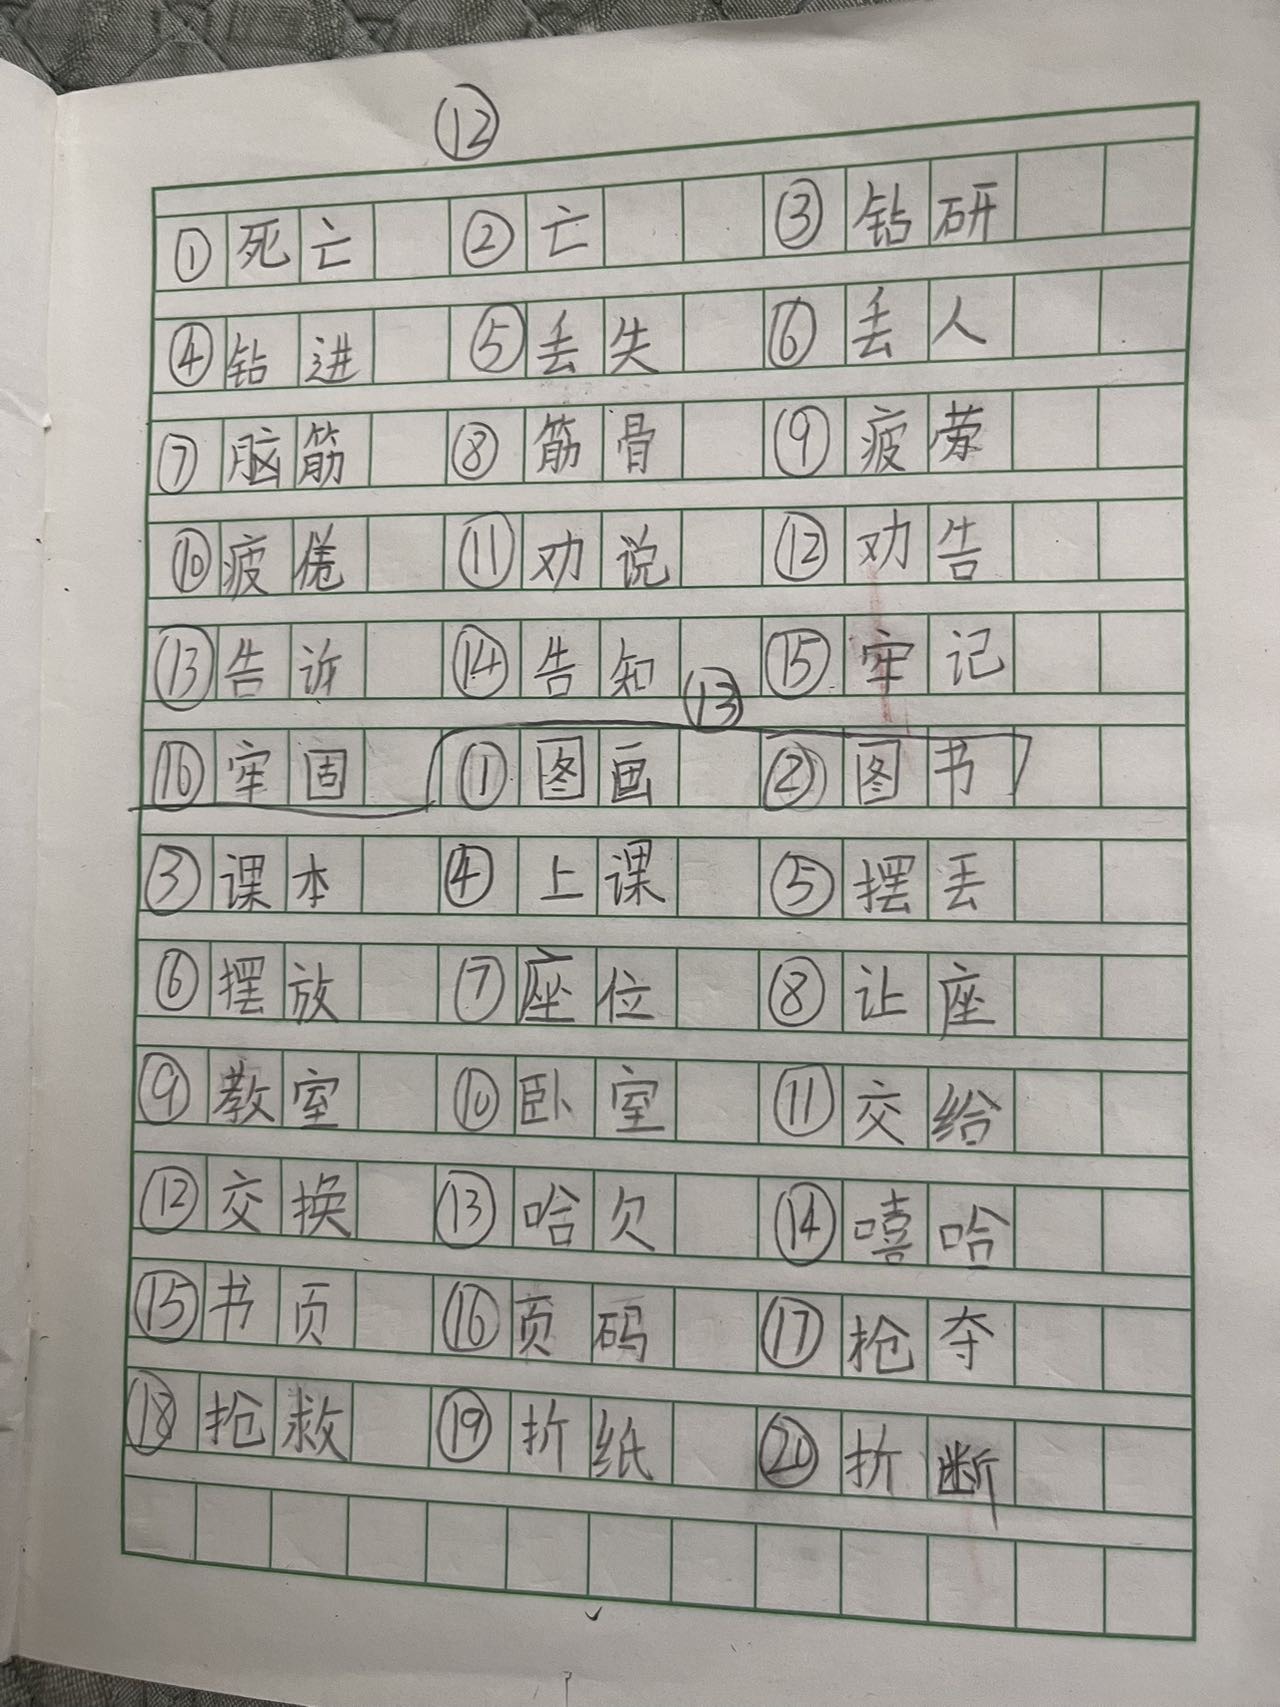 ⑫
①死亡 ②亡 ③钻研
④钻进 ⑤丢失 ⑥丢人
⑦脑筋 ⑧筋骨 ⑨疲劳
⑩疲倦 ⑪劝说 ⑫劝告
⑬告诉 ⑭告知 ⑮牢记
⑬
⑯牢固 ①图画 ②图书
③课本 ④上课 ⑤摆丢
⑥摆放 ⑦座位 ⑧让座
⑨教室 ⑩卧室 ⑪交给
⑫交换 ⑬哈欠 ⑭嘻哈
⑮书页 ⑯页码 ⑰抢夺
⑱抢救 ⑲折纸 ⑳折断